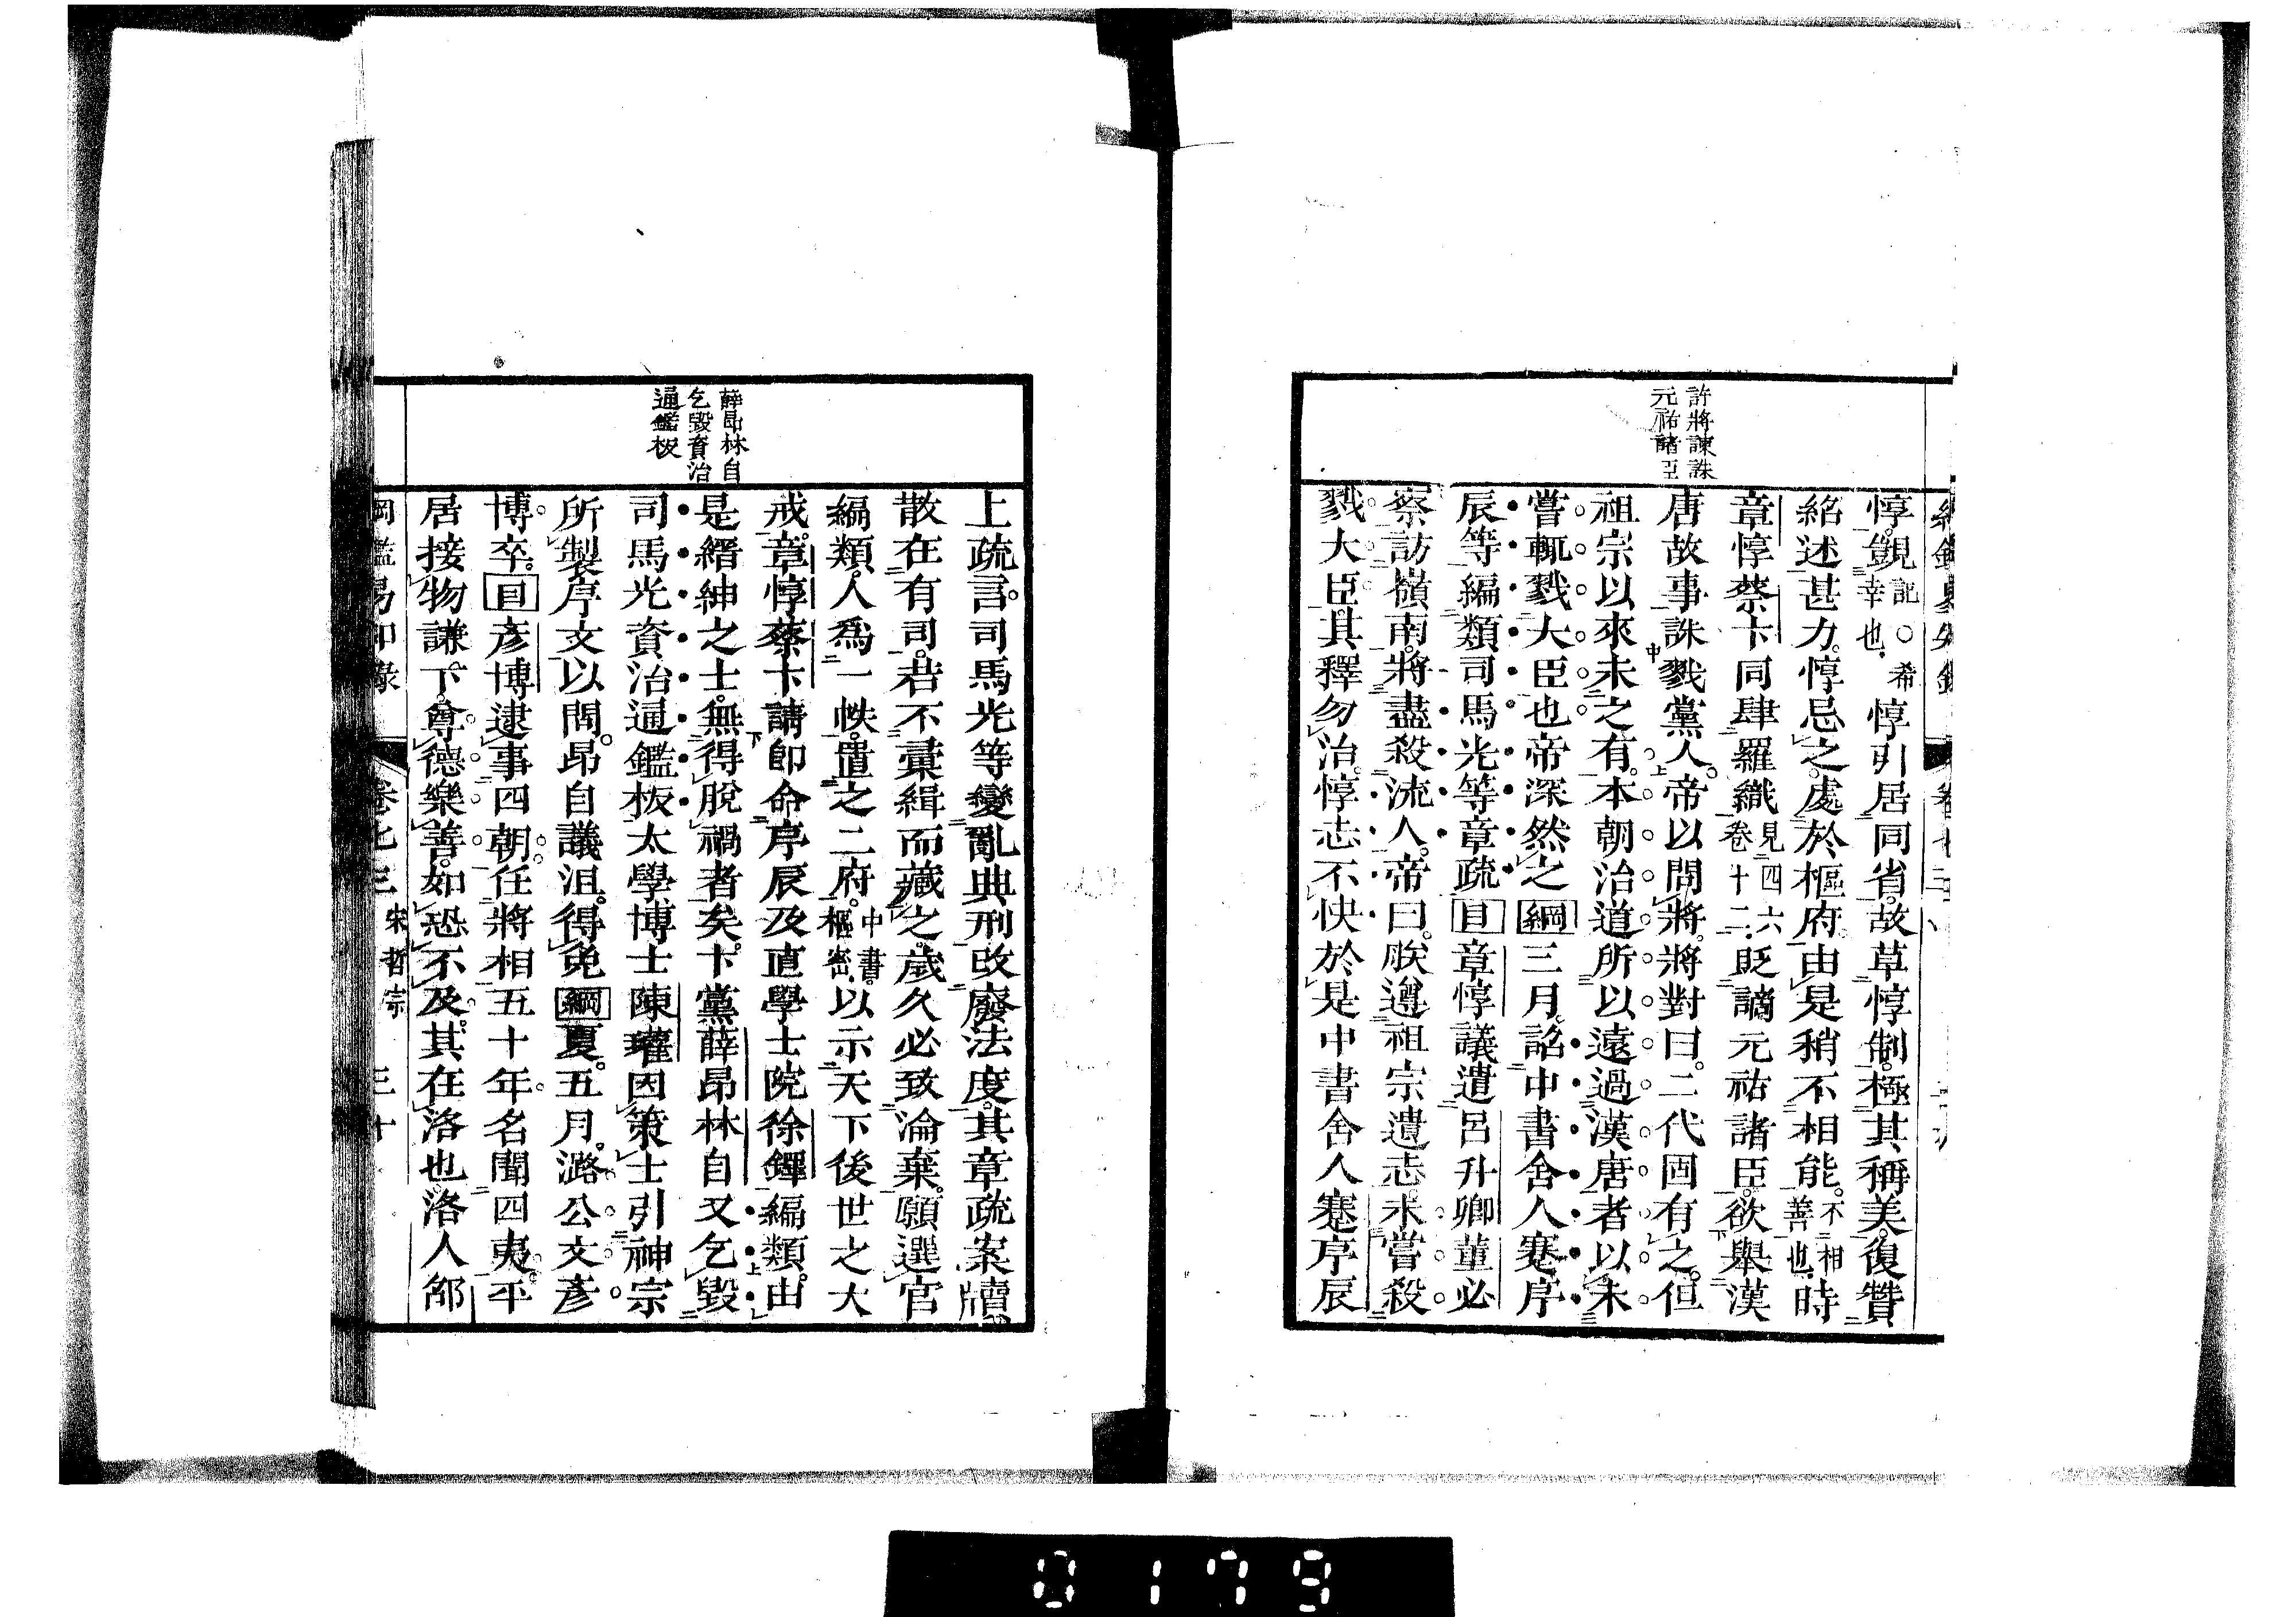 許將諫誅
元祐諸臣
惇覬記○希幸也惇引居同省故草惇制極其稱美復贊
紹述甚力惇忌之處於樞府由是稍不相能不相善也時
章惇蔡卞同肆羅織見四六卷十二貶謫元祐諸臣欲舉漢
唐故事誅戮黨人帝以問將將對曰二代固有之但
祖宗以來未之有本朝治道所以遠過漢唐者以未
嘗輒戮大臣也帝深然之綱三月詔中書舍人蹇序
辰等編類司馬光等章疏目章惇議遣呂升卿董必
察訪嶺南將盡殺流人帝曰朕遵祖宗遺志未嘗殺
戮大臣其釋勿治惇志不快於是中書舍人蹇序辰
薛昂林自
乞毀資治
通鑑板
上疏言司馬光等變亂典刑改廢法度其章疏案牘
散在有司若不彙緝而藏之歲久必致淪棄願選官
編類人爲一帙置之二府中書樞密以示天下後世之大
戒章惇蔡卞請卽命序辰及直學士院徐鐸編類由
是縉紳之士無得脫禍者矣卞黨薛昂林自又乞毀
司馬光資治通鑑板太學博士陳瓘因策士引神宗
所製序文以問昂自議沮得免綱夏五月潞公文彥
博卒目彥博逮事四朝任將相五十年名聞四夷平
居接物謙下尊德樂善如恐不及其在洛也洛人邵
綱鑑易知錄 卷七三 宋哲宗 三十
0179